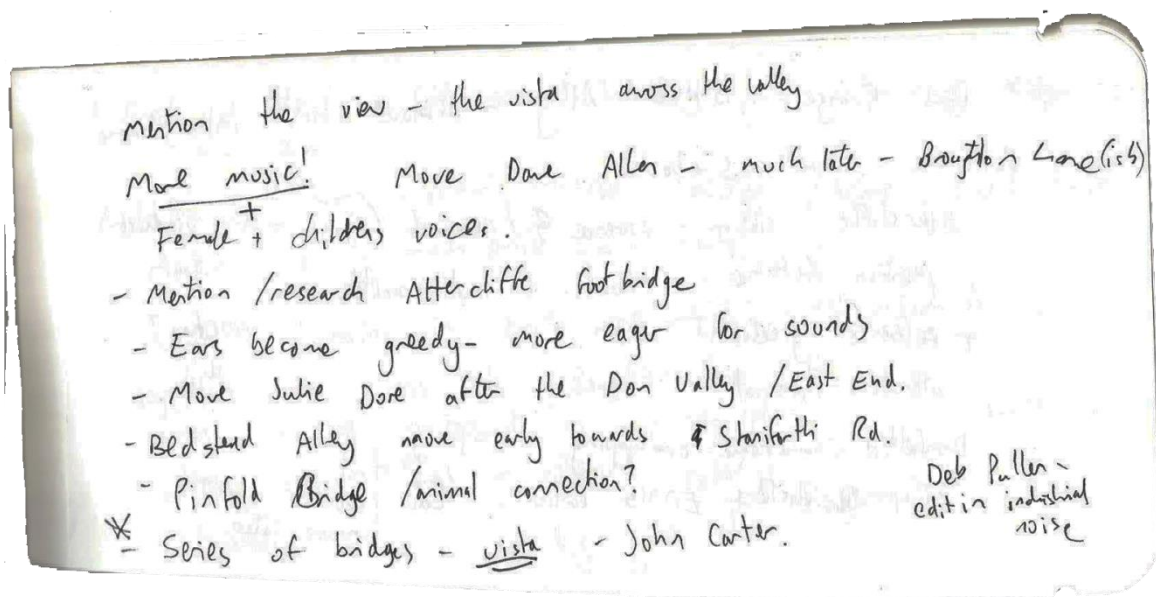 Mention the view - the vista across the valley
More music! Move Dave Allen - much later - Broughton Lane (ish)
+
Female + childrens voices.
- Mention / research Attercliffe footbridge
- Ears become greedy - more eager for sounds
- Move Julie Dore after the Don Valley / East End.
- Bedstead Alley move early towards Staniforth Rd.
- Pinfold Bridge / animal connection?
* - Series of bridges - vista - John Carter.
Deb Pullen -
edit in industrial
noise